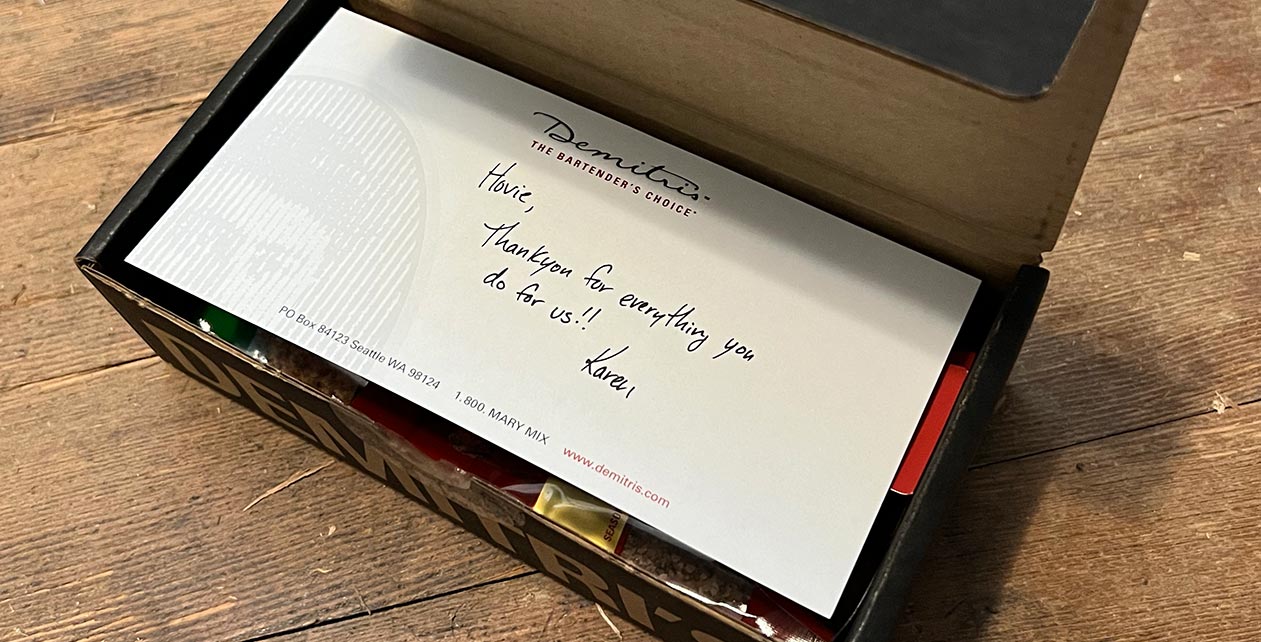 Demitris
THE BARTENDER'S CHOICE
Hovie,
Thankyou for everything you
do for us!!
Karen
PO Box 84123 Seattle WA 98124 1.800. MARY MIX www.demitris.com
DEMITRI'S